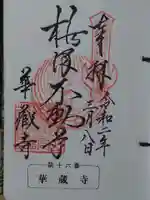 奉拝
令和二年
三月八日
不動尊
華蔵寺
第十六番
華蔵寺